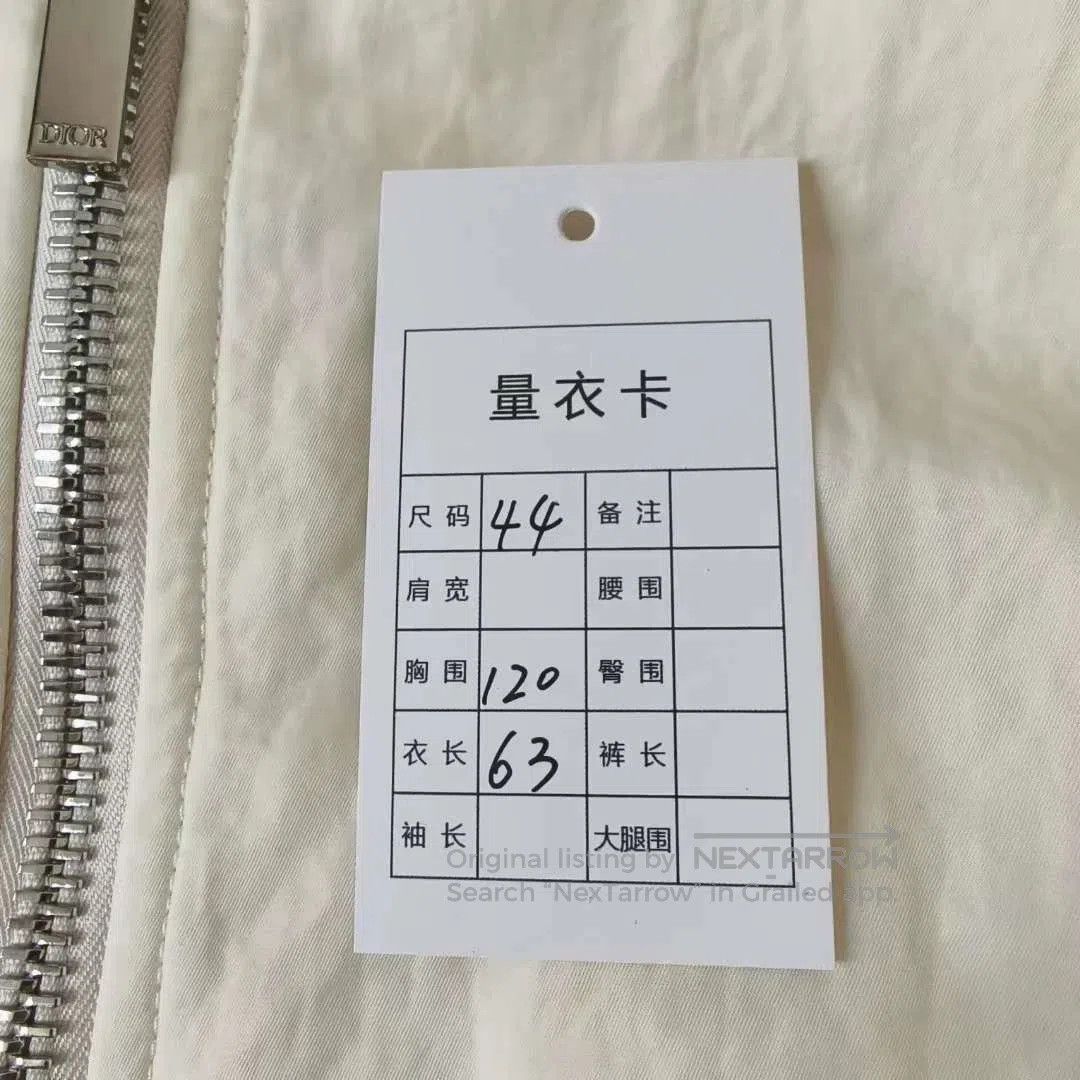 DIOR
量衣卡
尺码 44 备注
肩宽 腰围
胸围 120 臀围
衣长 63 裤长
袖长 大腿围
Original listing by NEXTARROW
Search “NexTarrow” in Grailed app.